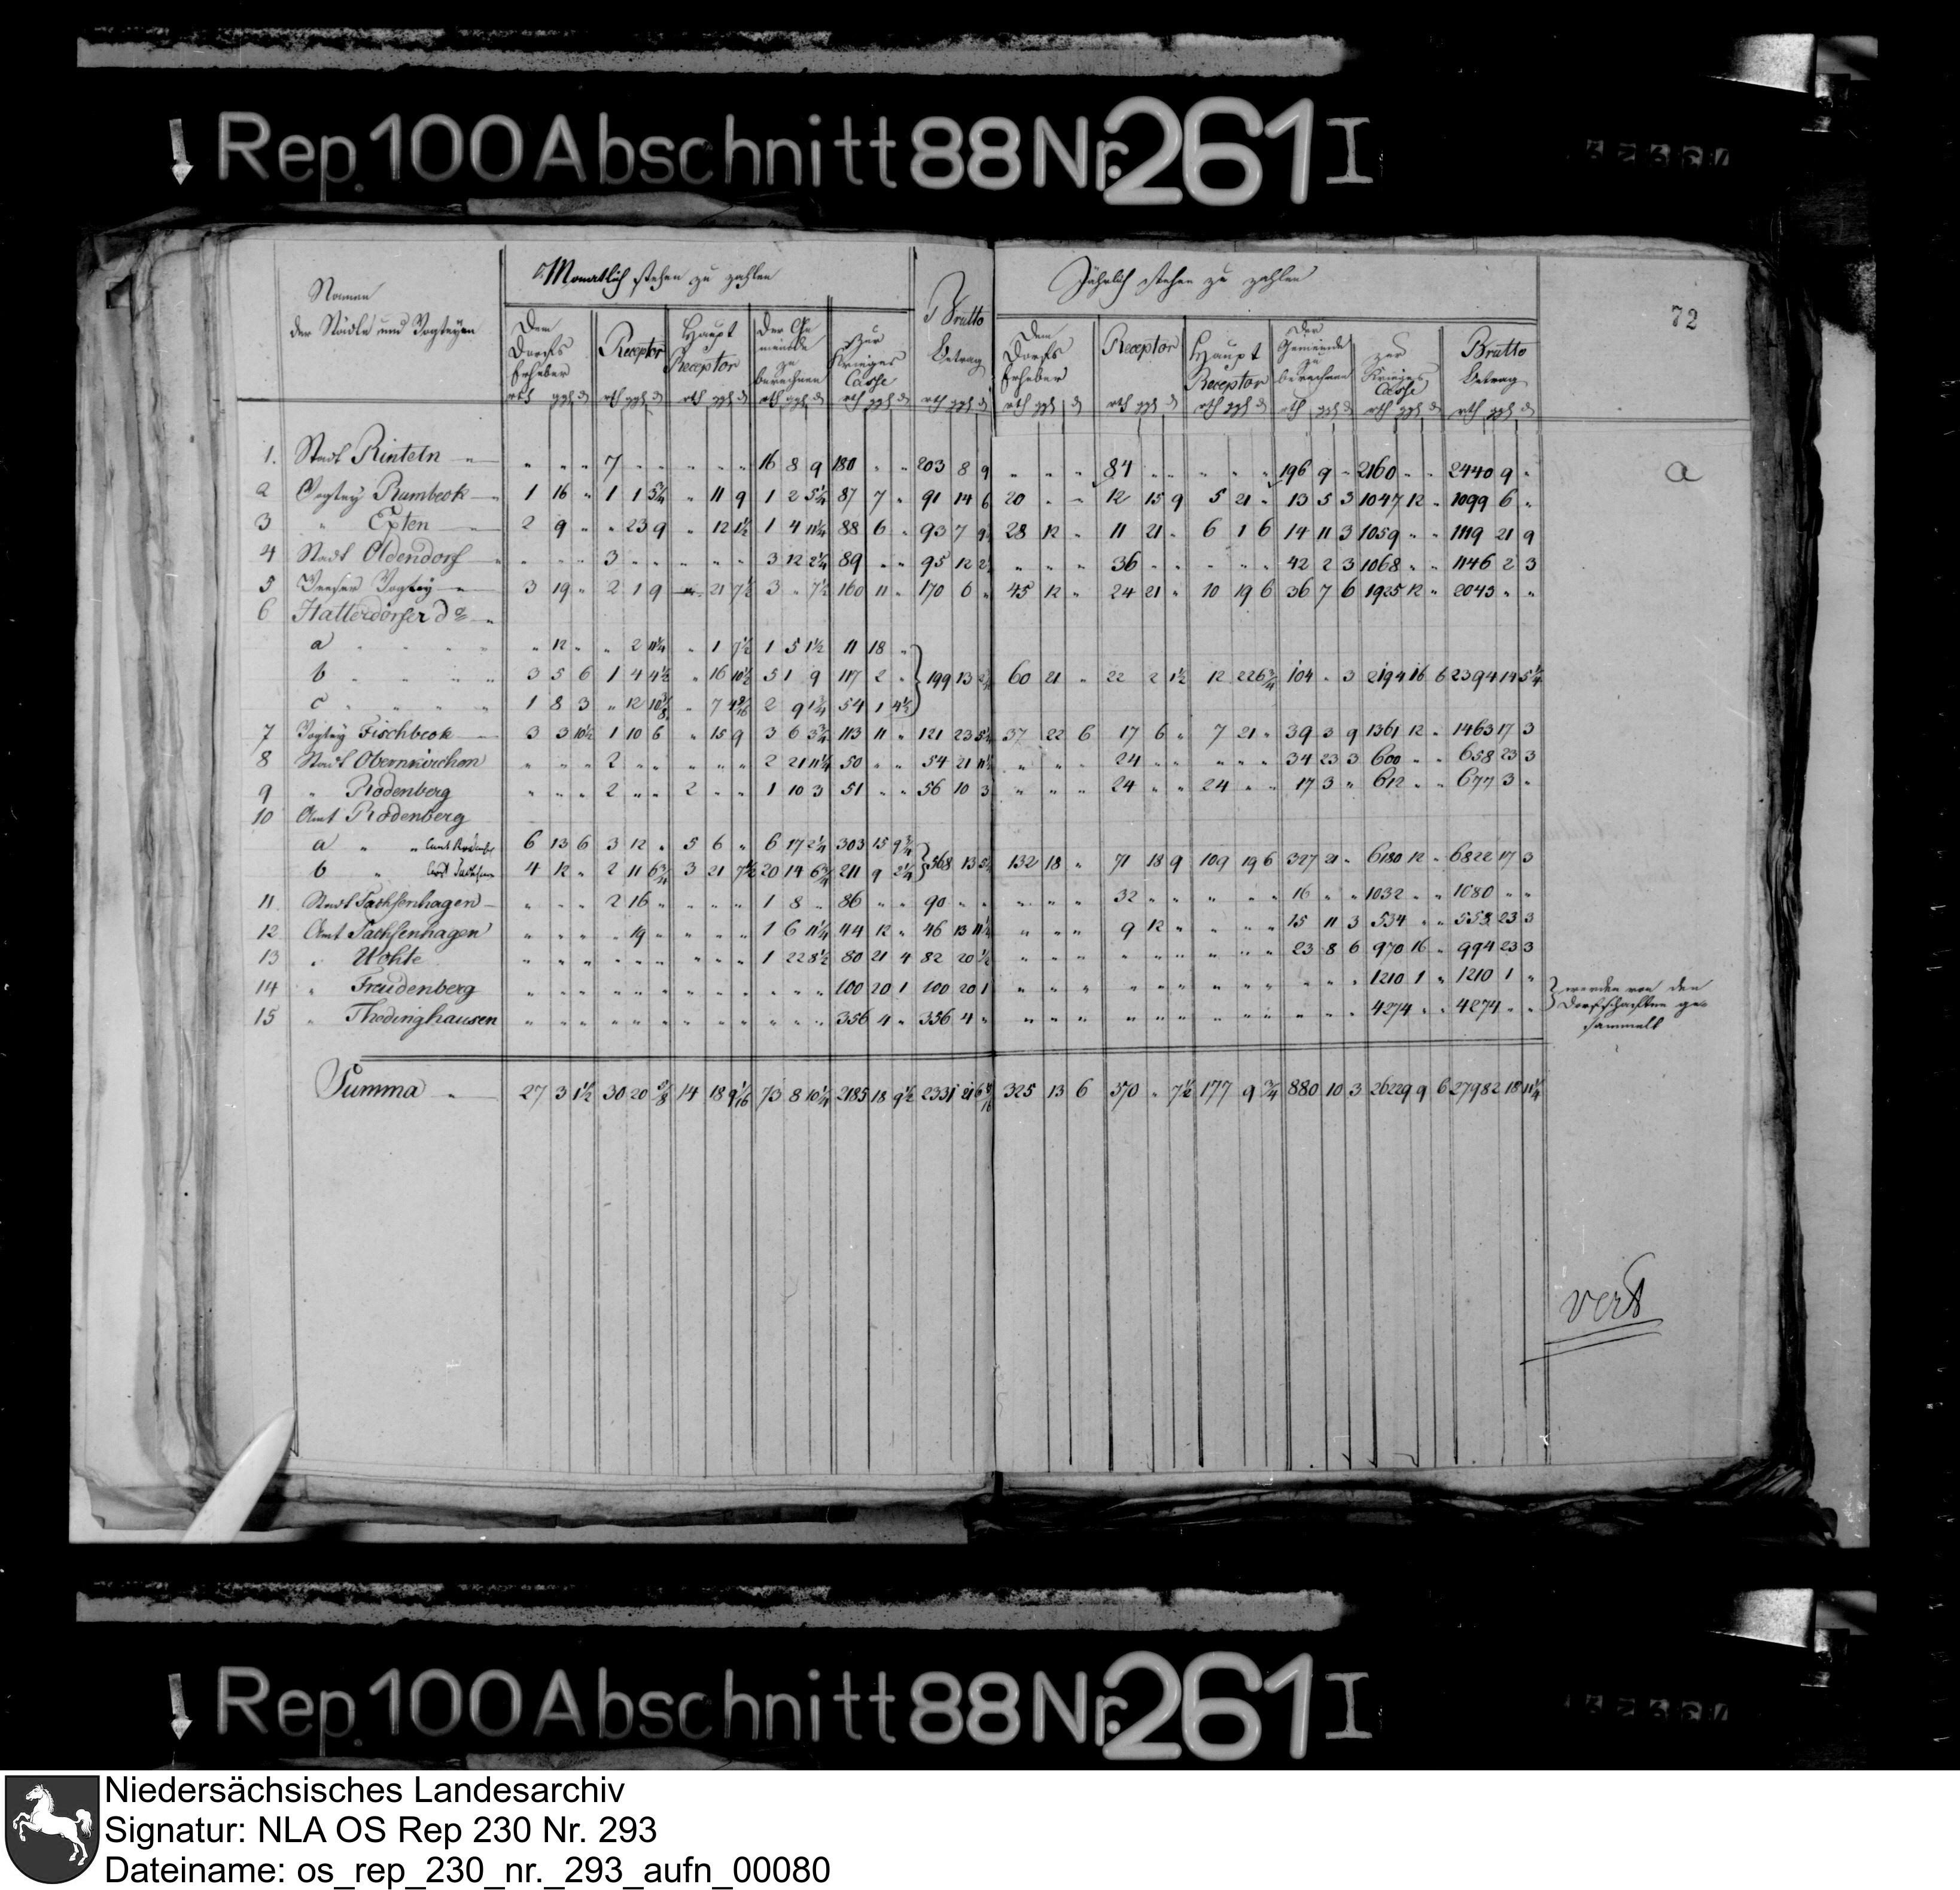 Rep. 100 Abschnitt 88 Nr. 261 I
Namen
der Städte und Vogteyen
Monatlich stehen zu zahlen
Dem Dorfs Erheber
Receptor
Haupt Receptor
Der Gemeinde zu berechnen
Zur Krieges Casse
Brutto Betrag
Jährlich stehen zu zahlen
Dem Dorfs Erheber
Receptor
Haupt Receptor
Der Gemeinde zu berechnen
zur Krieges Casse
Brutto Betrag
72
a
1. Stadt Rinteln " " " 7 " " " " " 16 8 9 180 " " 203 8 9 " " " 84 " " " " " 196 9 " 2160 " " 2440 9 "
2 Vogtey Rumbeck 1 16 " 1 1 5 1/4 " 11 9 1 2 5 1/4 87 7 " 91 14 6 20 " " 12 15 9 5 21 " 13 5 3 1047 12 " 1099 6 "
3 " Exten 2 9 " " 23 9 " 12 1 1/2 1 4 11 1/4 88 6 " 93 7 9 28 12 " 11 21 " 6 1 6 14 11 3 1059 " " 1119 21 9
4 Stadt Oldendorf " " " 3 " " " " " 3 12 2 1/4 89 " " 95 12 2 " " " 36 " " " " " 42 2 3 1068 " " 1146 2 3
5 Weser Vogtey 3 19 " 2 1 9 " 21 7 1/2 3 " 7 1/2 160 11 " 170 6 " 45 12 " 24 21 " 10 19 6 36 7 6 1925 12 " 2043 " "
6 Hattendorfer do
a " 12 " " 2 11 1/4 " 1 7 1/2 1 5 1 1/2 11 18 "
b 3 5 6 1 4 4 1/2 " 16 10 1/2 5 1 9 117 2 " 199 13 60 21 " 22 2 1 1/2 12 22 6 3/4 104 " 3 2194 16 6 2394 14 5 1/4
c 1 8 3 " 12 10 " 7 4 2 9 1 3/4 54 1 4 1/2
7 Vogtey Fischbeck 3 3 10 1/2 1 10 6 " 15 9 3 6 3 3/4 113 11 " 121 23 5 37 22 6 17 6 " 7 21 " 39 3 9 1361 12 " 1463 17 3
8 Stadt Obernkirchen " " " 2 " " " " " 2 21 11 1/4 50 " " 54 21 11 " " " 24 " " " " " 34 23 3 600 " " 658 23 3
9 " Rodenberg " " " 2 " " 2 " " 1 10 3 51 " " 56 10 3 " " " 24 " " 24 " " 17 3 " 612 " " 677 3 "
10 Amt Rodenberg
a " " 6 13 6 3 12 " 5 6 " 6 17 2 1/4 303 15 9 3/4
b " 4 12 " 2 11 6 3/4 3 21 7 1/2 20 14 6 3/4 211 9 2 1/4 568 13 5 132 18 " 71 18 9 109 19 6 327 21 " 6180 12 " 6822 17 3
11 Stadt Sachsenhagen " " " 2 16 " " " " 1 8 " 86 " " 90 " " " " " 32 " " " " " 16 " " 1032 " " 1080 " "
12 Amt Sachsenhagen " " " " 19 " " " " 1 6 11 1/4 44 12 " 46 13 11 1/4 " " " 9 12 " " " " 15 11 3 534 " " 558 23 3
13 " Uchte " " " " " " " " " 1 22 8 1/2 80 21 4 82 20 1/2 " " " " " " " " " 23 8 6 970 16 " 994 23 3
14 " Freudenberg " " " " " " " " " " " " 100 20 1 100 20 1 " " " " " " " " " " " " 1210 1 " 1210 1 "
15 " Thedinghausen " " " " " " " " " " " " 356 4 " 356 4 " " " " " " " " " " " " " 4274 " " 4274 " "
werden von den
Dorfschaften ge-
sammelt
Summa 27 3 1 1/2 30 20 14 18 9 73 8 10 1/4 2185 18 9 1/2 2331 21 6 325 13 6 370 " 7 1/2 177 9 3/4 880 10 3 26229 9 6 27982 18 11 1/4
vert
Rep. 100 Abschnitt 88 Nr. 261 I
Niedersächsisches Landesarchiv
Signatur: NLA OS Rep 230 Nr. 293
Dateiname: os_rep_230_nr._293_aufn_00080